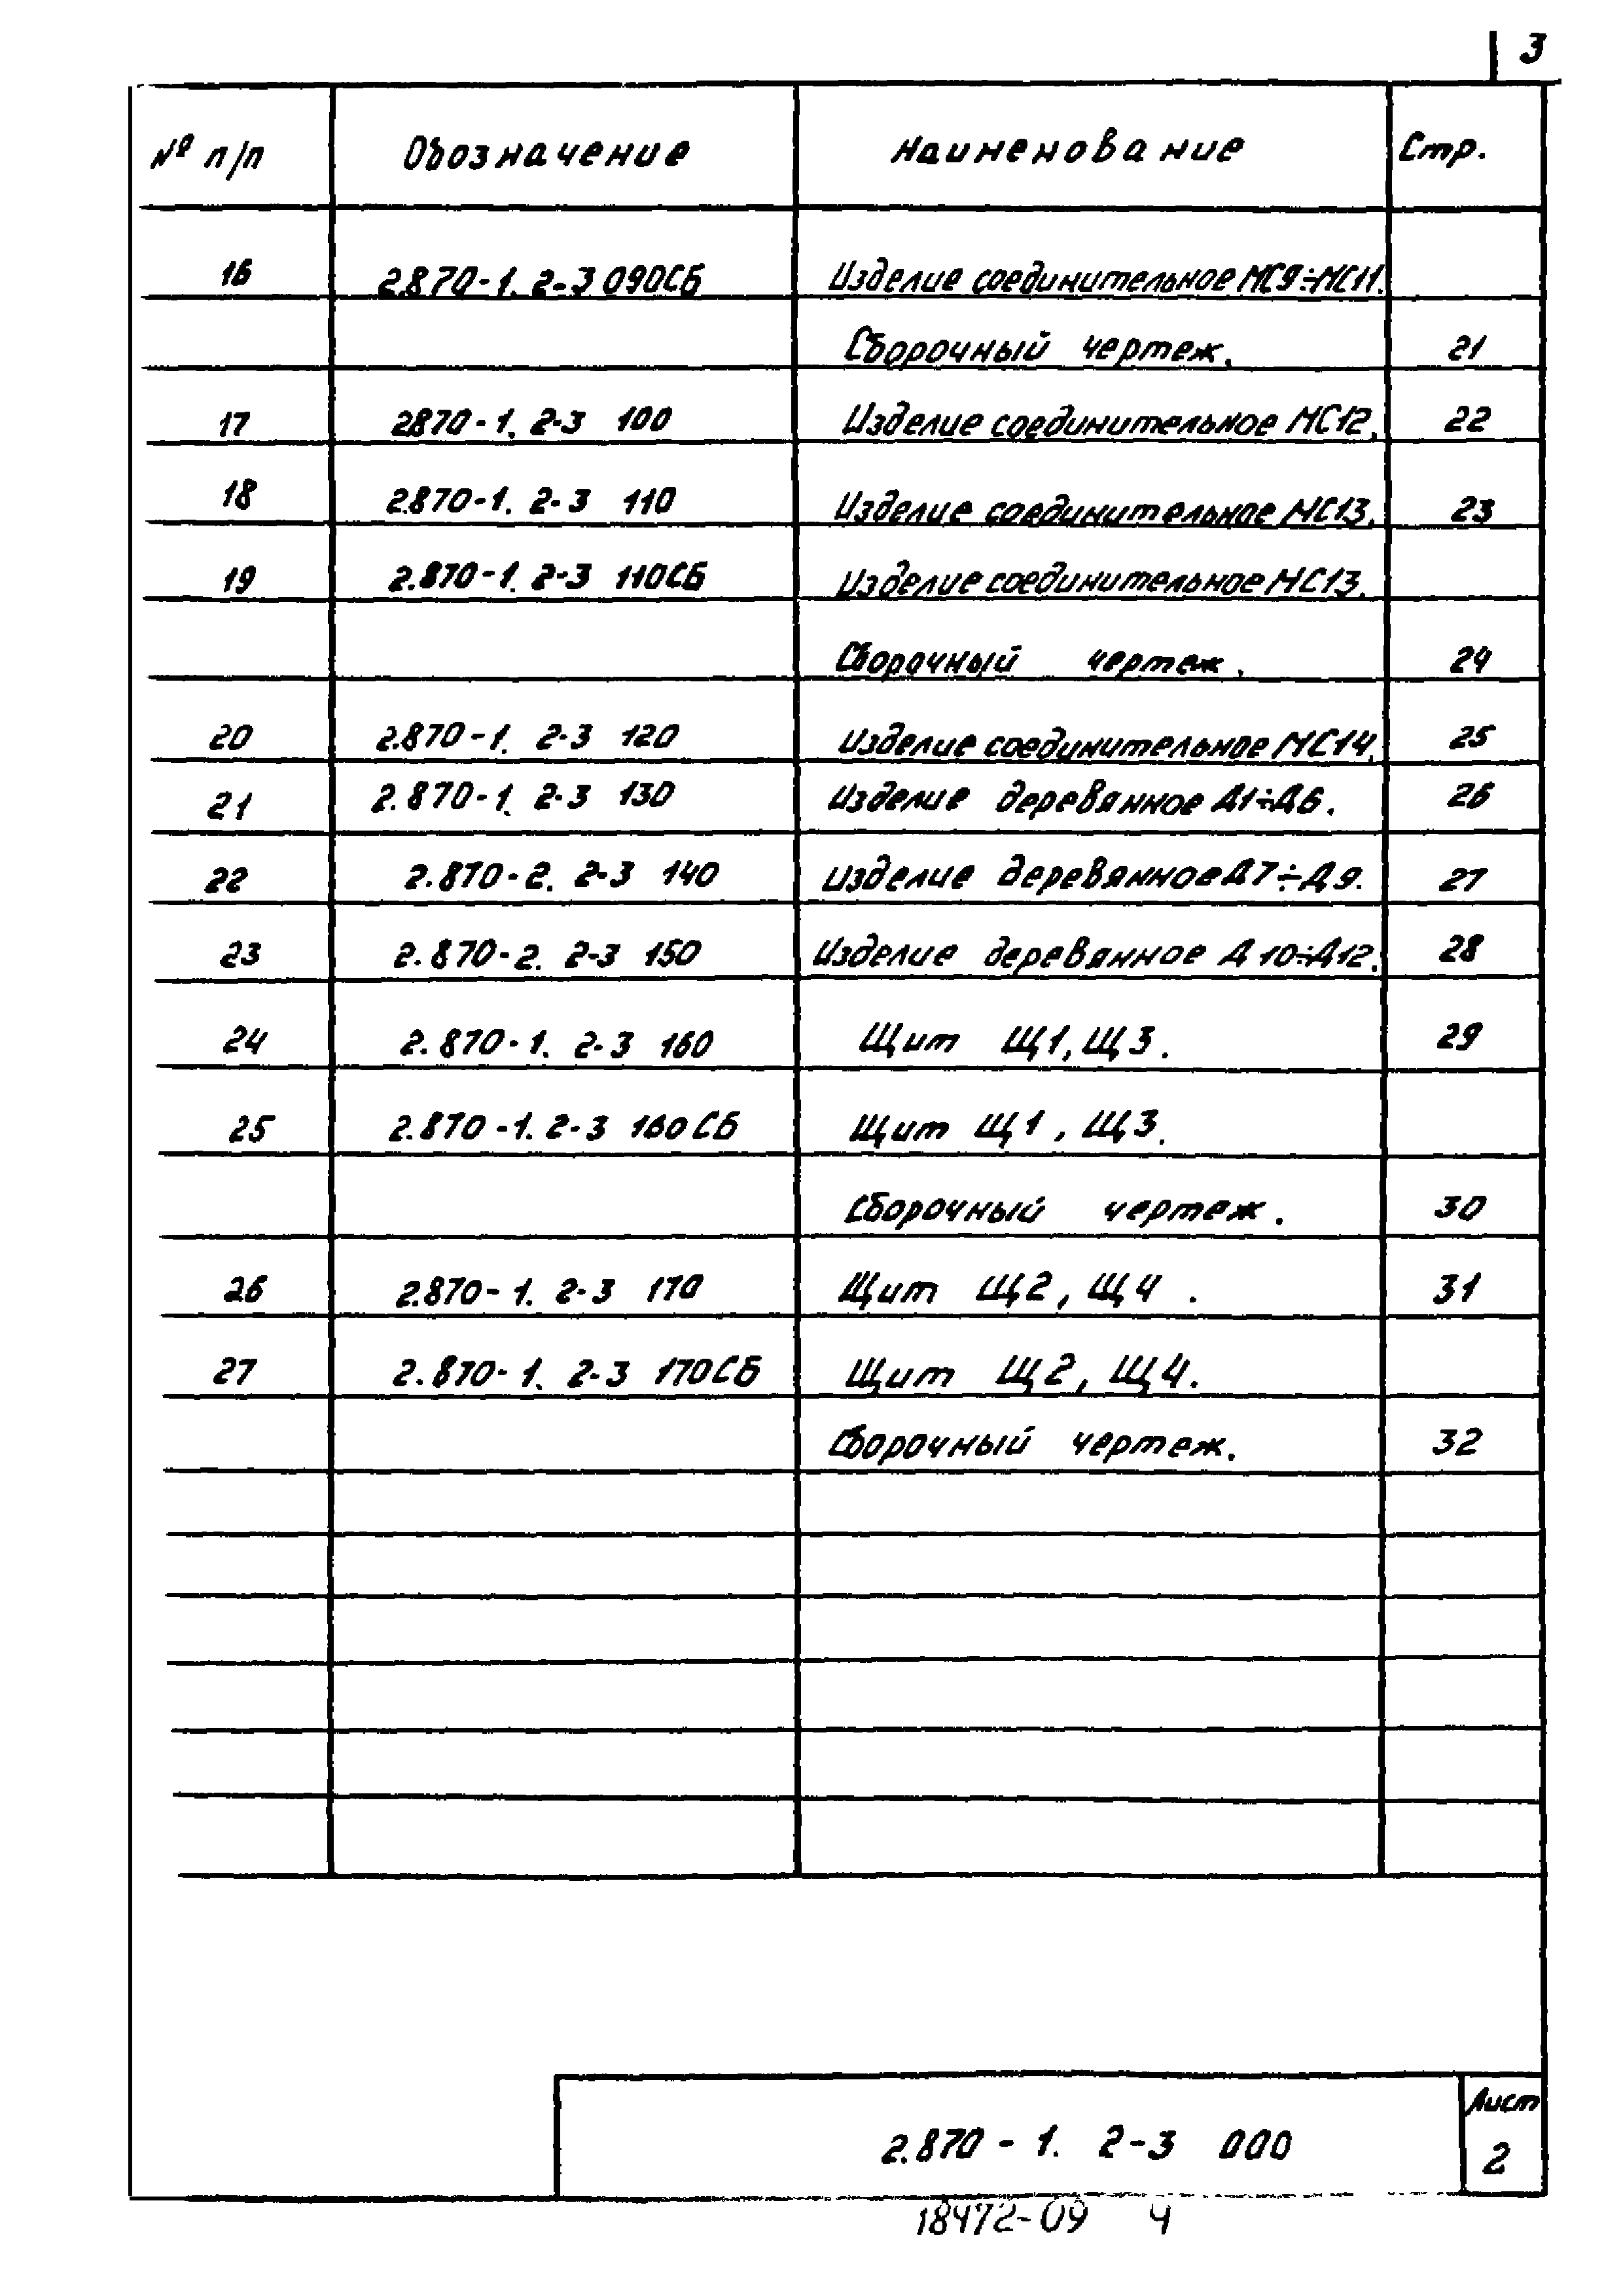 3
№ п/п Обозначение Наименование Стр.
16 2.870-1. 2-3 090СБ Изделие соединительное МС9÷МС11.
Сборочный чертеж. 21
17 2870-1. 2-3 100 Изделие соединительное МС12. 22
18 2.870-1. 2-3 110 Изделие соединительное МС13. 23
19 2.870-1. 2-3 110СБ Изделие соединительное МС13.
Сборочный чертеж. 24
20 2.870-1. 2-3 120 Изделие соединительное МС14. 25
21 2.870-1. 2-3 130 Изделие деревянное Д1÷Д6. 26
22 2.870-2. 2-3 140 Изделие деревянное Д7÷Д9. 27
23 2.870-2. 2-3 150 Изделие деревянное Д10÷Д12. 28
24 2.870-1. 2-3 160 Щит Щ1, Щ3. 29
25 2.870-1. 2-3 160СБ Щит Щ1, Щ3.
Сборочный чертеж. 30
26 2.870-1. 2-3 170 Щит Щ2, Щ4. 31
27 2.870-1. 2-3 170СБ Щит Щ2, Щ4.
Сборочный чертеж. 32
Лист
2.870-1. 2-3 000 2
18472-09 4